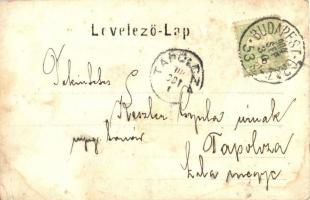 Levelező-Lap
BUDAPEST
53
TAPOLCZA
Tekintetes
Keszler Gyula úrnak
Tapolcza
Zala megye